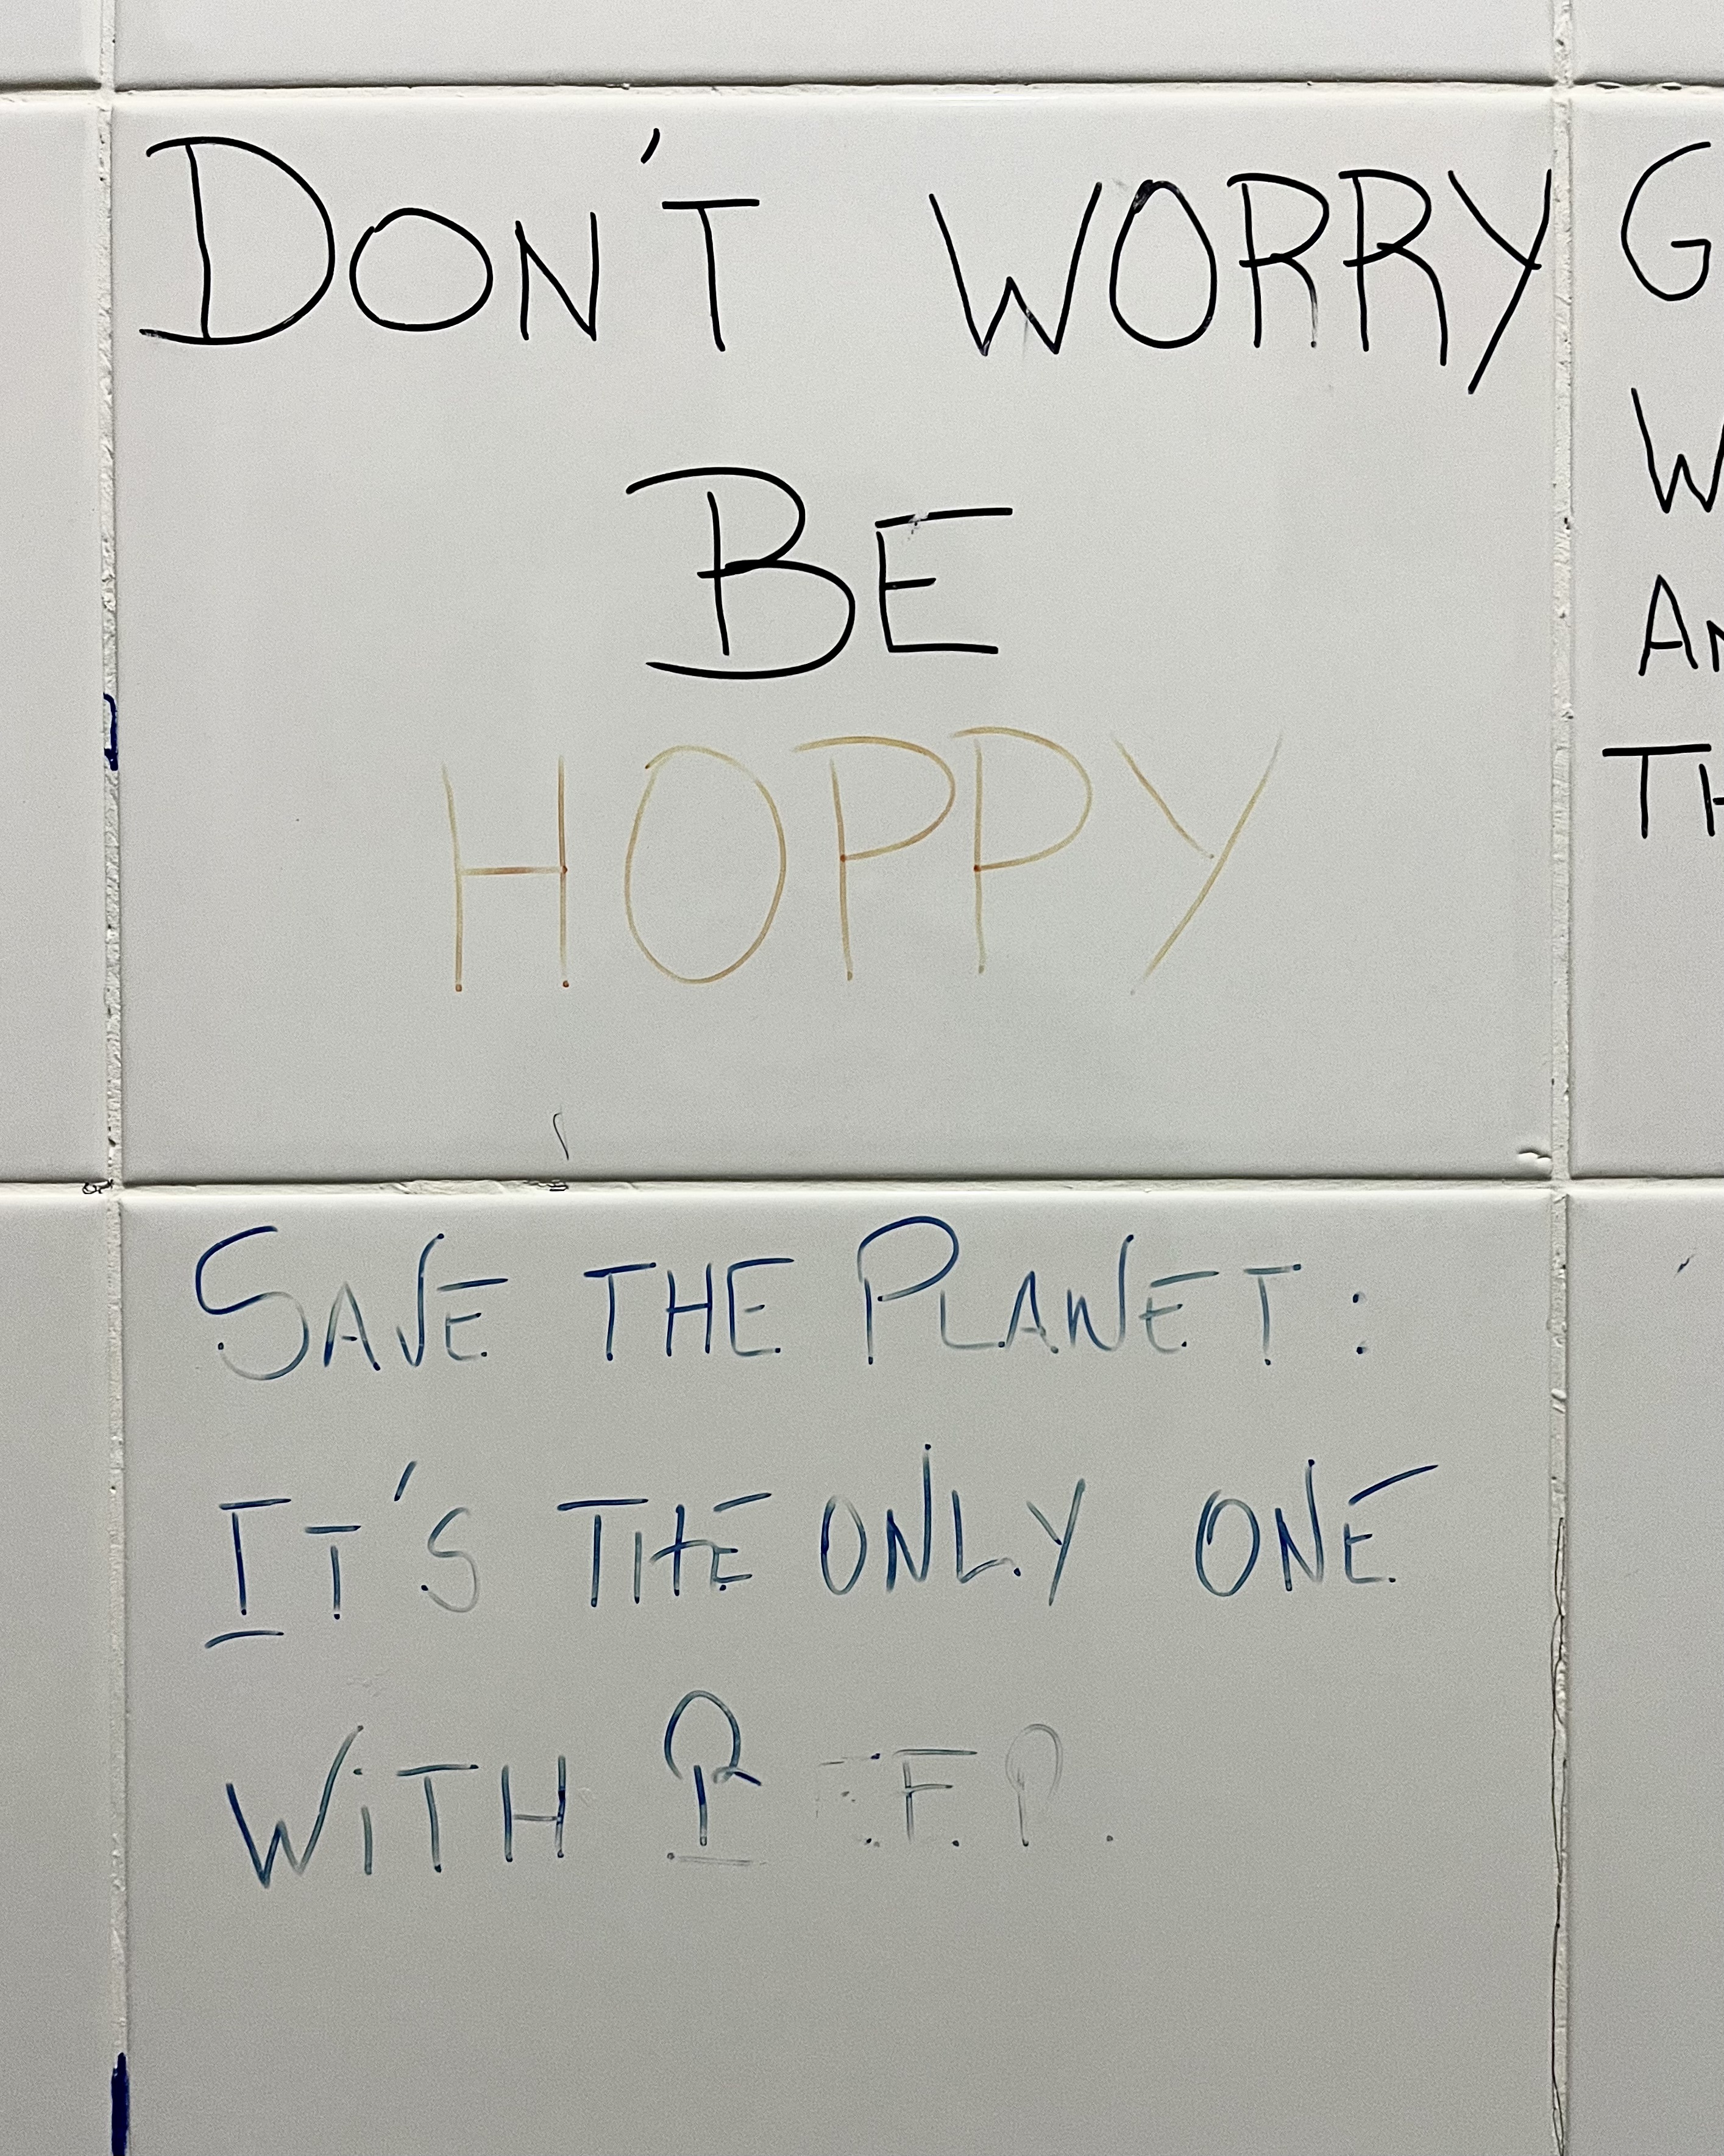 DON'T WORRY
BE
HOPPY
SAVE THE PLANET:
IT'S THE ONLY ONE
WITH
G
W
AN
TH